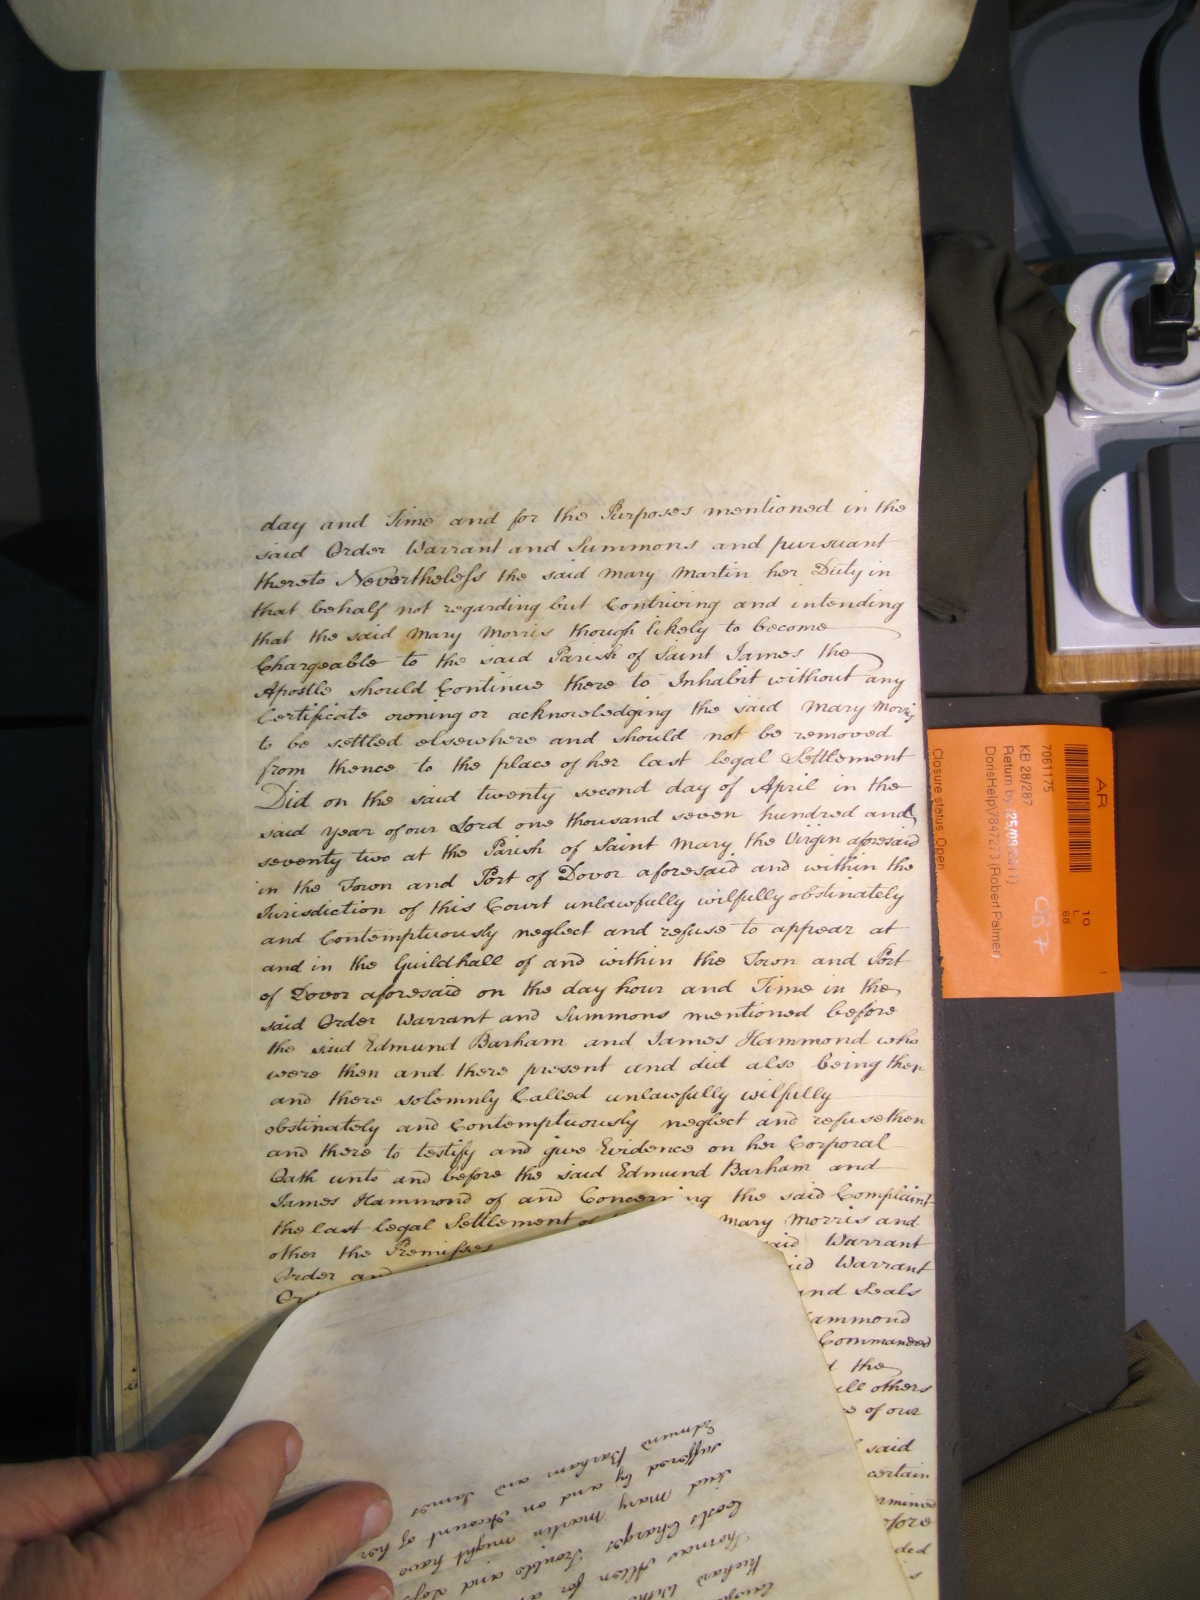 day and Time and for the Purposes mentioned in the
said Order Warrant and Summons and pursuant
thereto Nevertheless the said Mary Martin her Duty in
that behalf not regarding but Contriving and intending
that the said Mary Morris though likely to become
Chargeable to the said Parish of Saint James the
Apostle should Continue there to Inhabit without any
Certificate owning or acknowledging the said Mary Morris
to be settled elsewhere and should not be removed
from thence to the place of her last legal Settlement
Did on the said twenty second day of April in the
said Year of our Lord one thousand seven hundred and
seventy two at the Parish of Saint Mary the Virgin aforesaid
in the Town and Port of Dovor aforesaid and within the
Jurisdiction of this Court unlawfully wilfully obstinately
and Contemptuously neglect and refuse to appear at
and in the Guildhall of and within the Town and Port
of Dovor aforesaid on the day hour and Time in the
said Order Warrant and Summons mentioned before
the said Edmund Barham and James Hammond who
were then and there present and did also being then
and there solemnly Called unlawfully wilfully
obstinately and Contemptuously neglect and refuse then
and there to testify and give Evidence on her Corporal
Oath unto and before the said Edmund Barham and
James Hammond of and Concerning the said Complaint
the last legal Settlement of Mary Morris and
other the Premisses said Warrant
Order and said Warrant
and Seals
ammond
Commanded
the
all others
of our
said
certain
ded
Edmund Barham and James
suffered by and on Account of her
said Mary Martin might have
Costs Charges Trouble and Loss
Thomas Allen for
Richard
AR
7061175
KB 28/287
Return by 25/09
DorisHelp\7847273 (Robert Palmer)
Closure status: Open
10
L
68